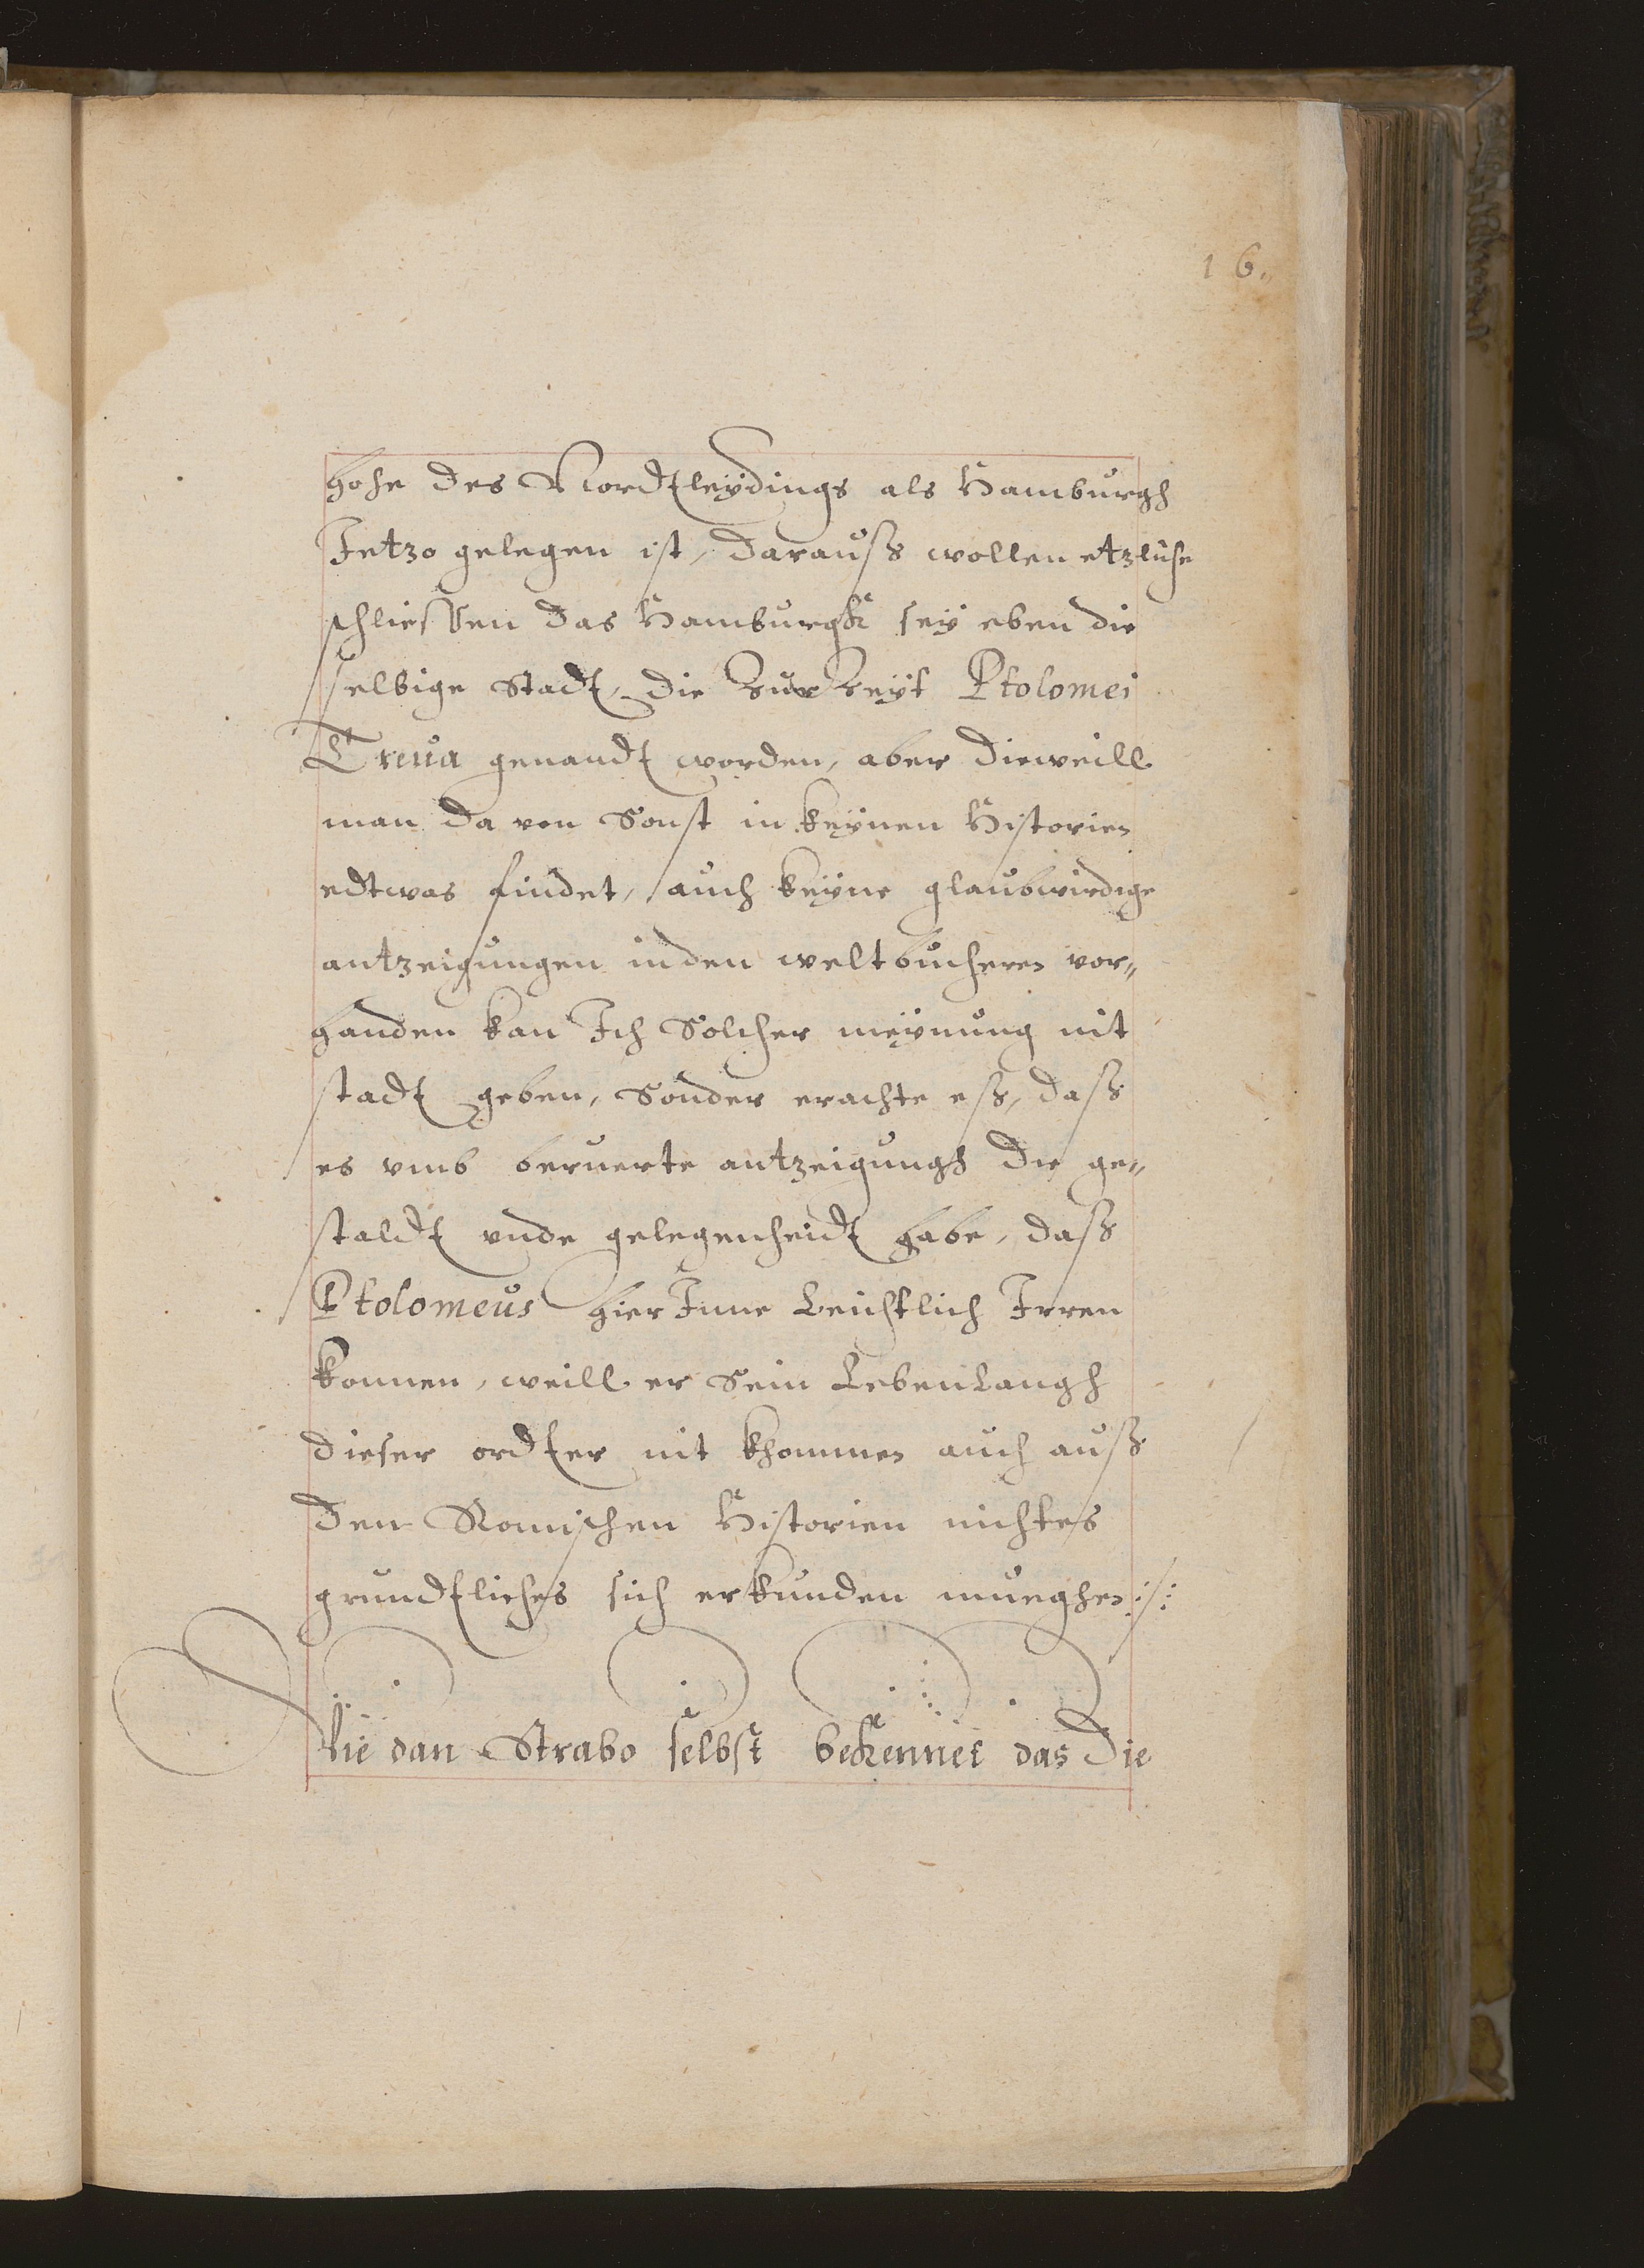 16.
hohe des Nordtleydings als Hamburgh
Jetzo gelegen ist, darauß wollen etzliche
schliessen das Hamburgk sey eben die
selbige Stadt, die Zur Zeyt Ptolomei
Treua genandt worden, aber dieweill
man da von Sonst in keynen Historien
edtwas findet, auch keyne glaubwirdige
antzeigungen in den weltbucheren vor„
handen kan Ich Solcher meynung nit
stadt geben, Sonder erachte eß, daß
es vmb beruerte antzeigungh die ge„
staldt vnde gelegenheidt habe, daß
Ptolomeus hier Inne Leichtlich Irren
konnen, weill er Sein Lebenlangh
dieser ordter nit khommen auch auß
den Romischen Historien nichtes
grundtliches sich erkunden mueghen
Wie dan Strabo selbst bekennet das Die